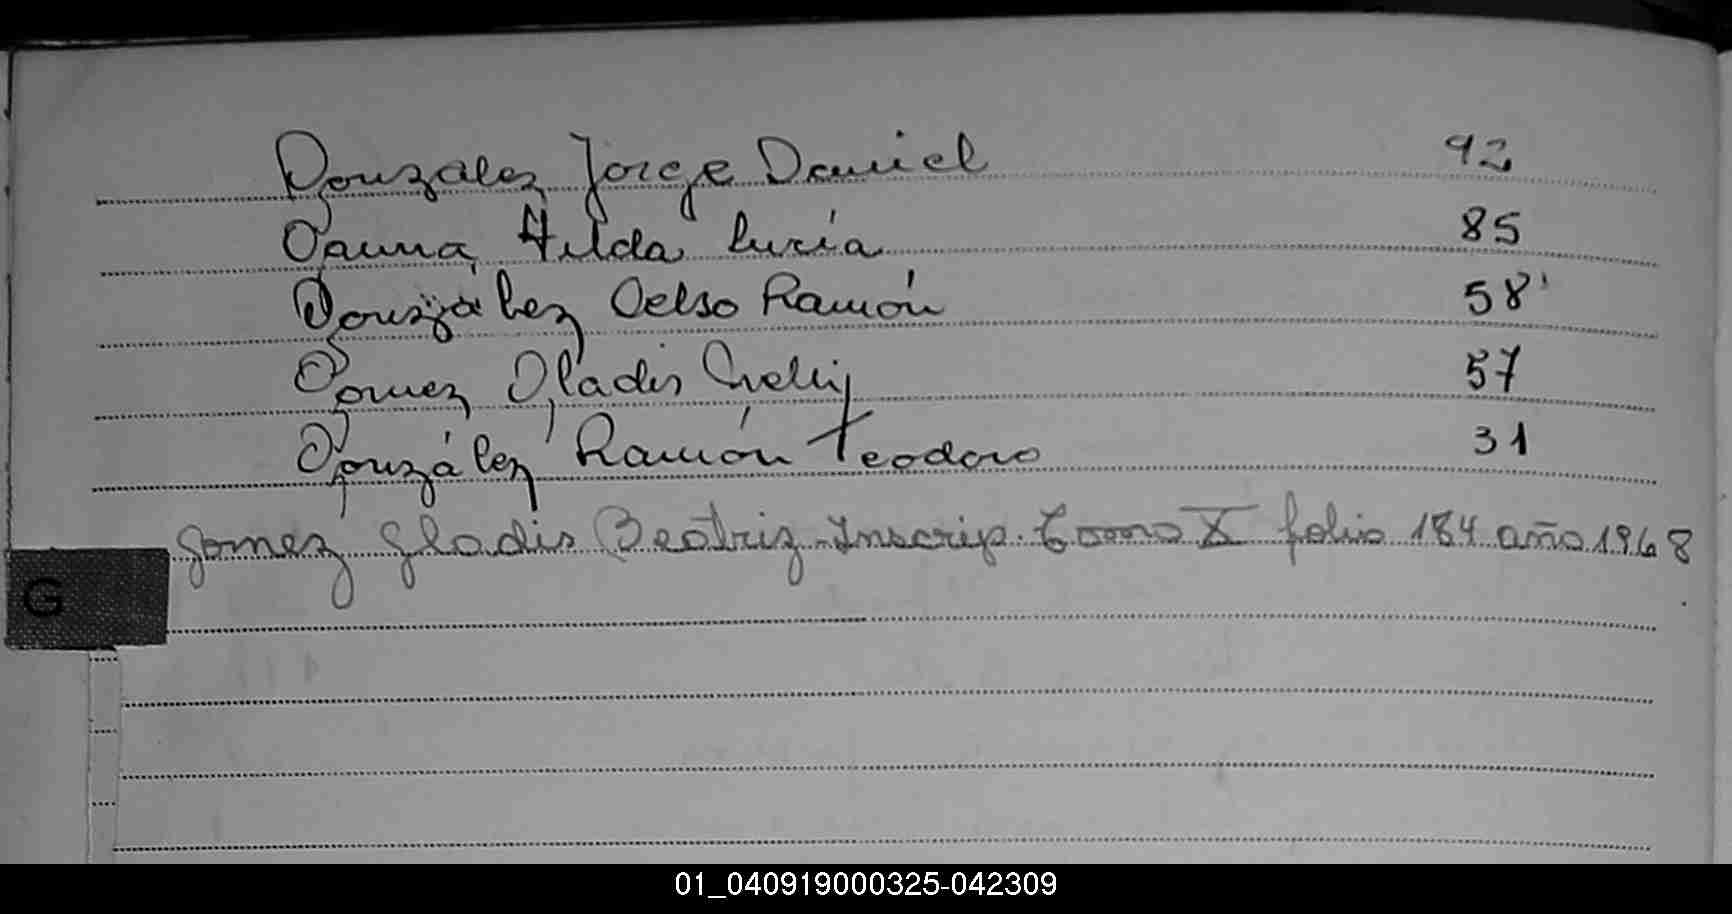 Gonzalez Jorge Daniel 92
Gauna, Hilda Lucía 85
González Celso Ramón 58
Gomez, Gladis Nelly 57
González Ramón Teodoro 31
Gomez Gladis Beatriz - Inscrip. Tomo X folio 184 año 1968
G
01_040919000325-042309